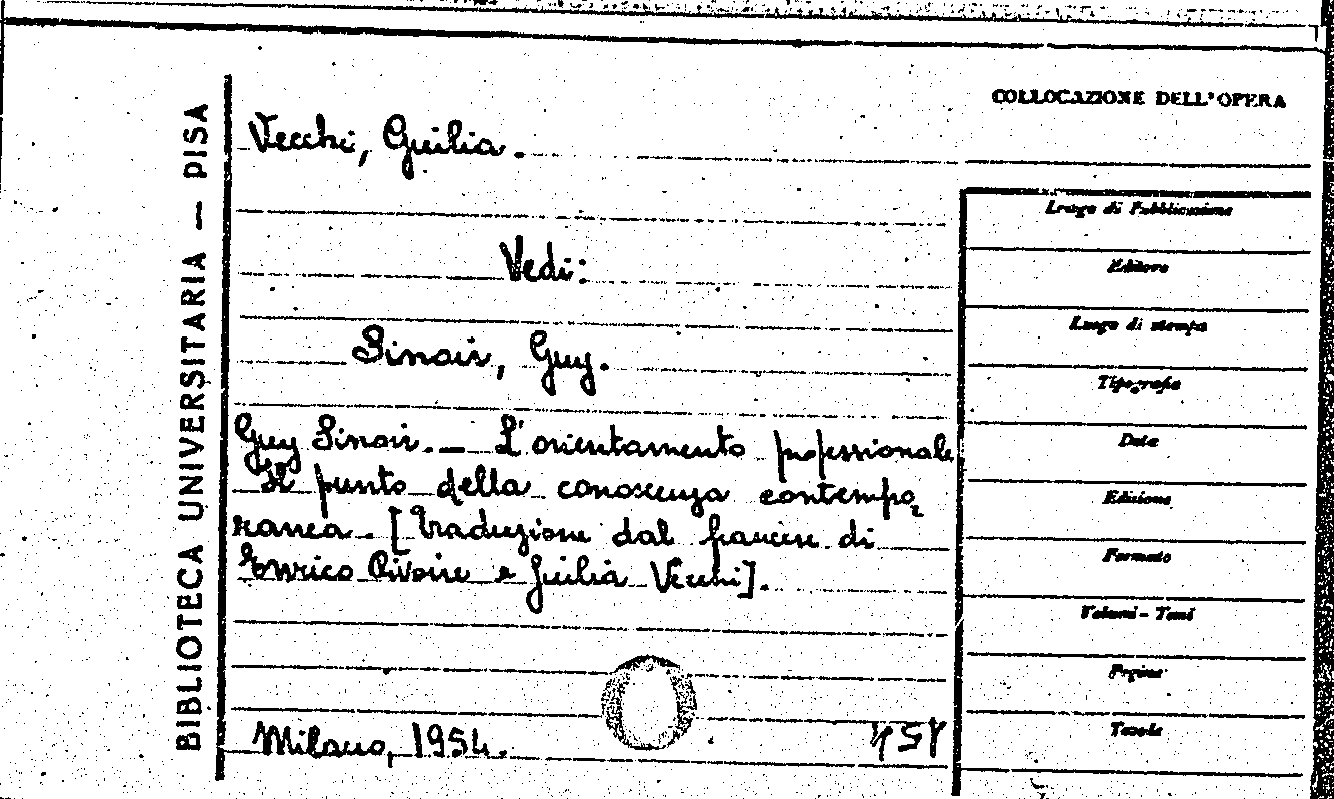 BIBLIOTECA UNIVERSITARIA — PISA
COLLOCAZIONE DELL'OPERA
Vecchi, Giulia.
Vedi:
Sinoir, Guy.
Guy Sinoir. — L'orientamento professionale
Il punto della conoscenza contempo
ranea. [Traduzione dal francese di
Enrico Rivoire e Giulia Vecchi].
Milano, 1954.
Luogo di Pubblicazione
Editore
Luogo di stampa
Tipografia
Data
Edizione
Formato
Volumi - Tomi
Pagine
Tavole